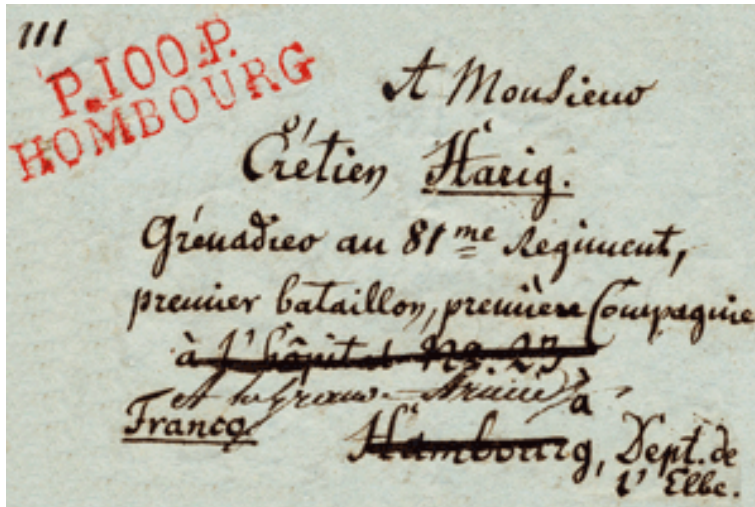 111
P.100.P.
HOMBOURG
A Monsieur
Crétien Harig.
Grénadier au 81me Regiment,
premier bataillon, première Compagnie
à l'hôpital No. 23
A la Grande Armée à
Franco.
Hambourg, Dept. de
l'Elbe.